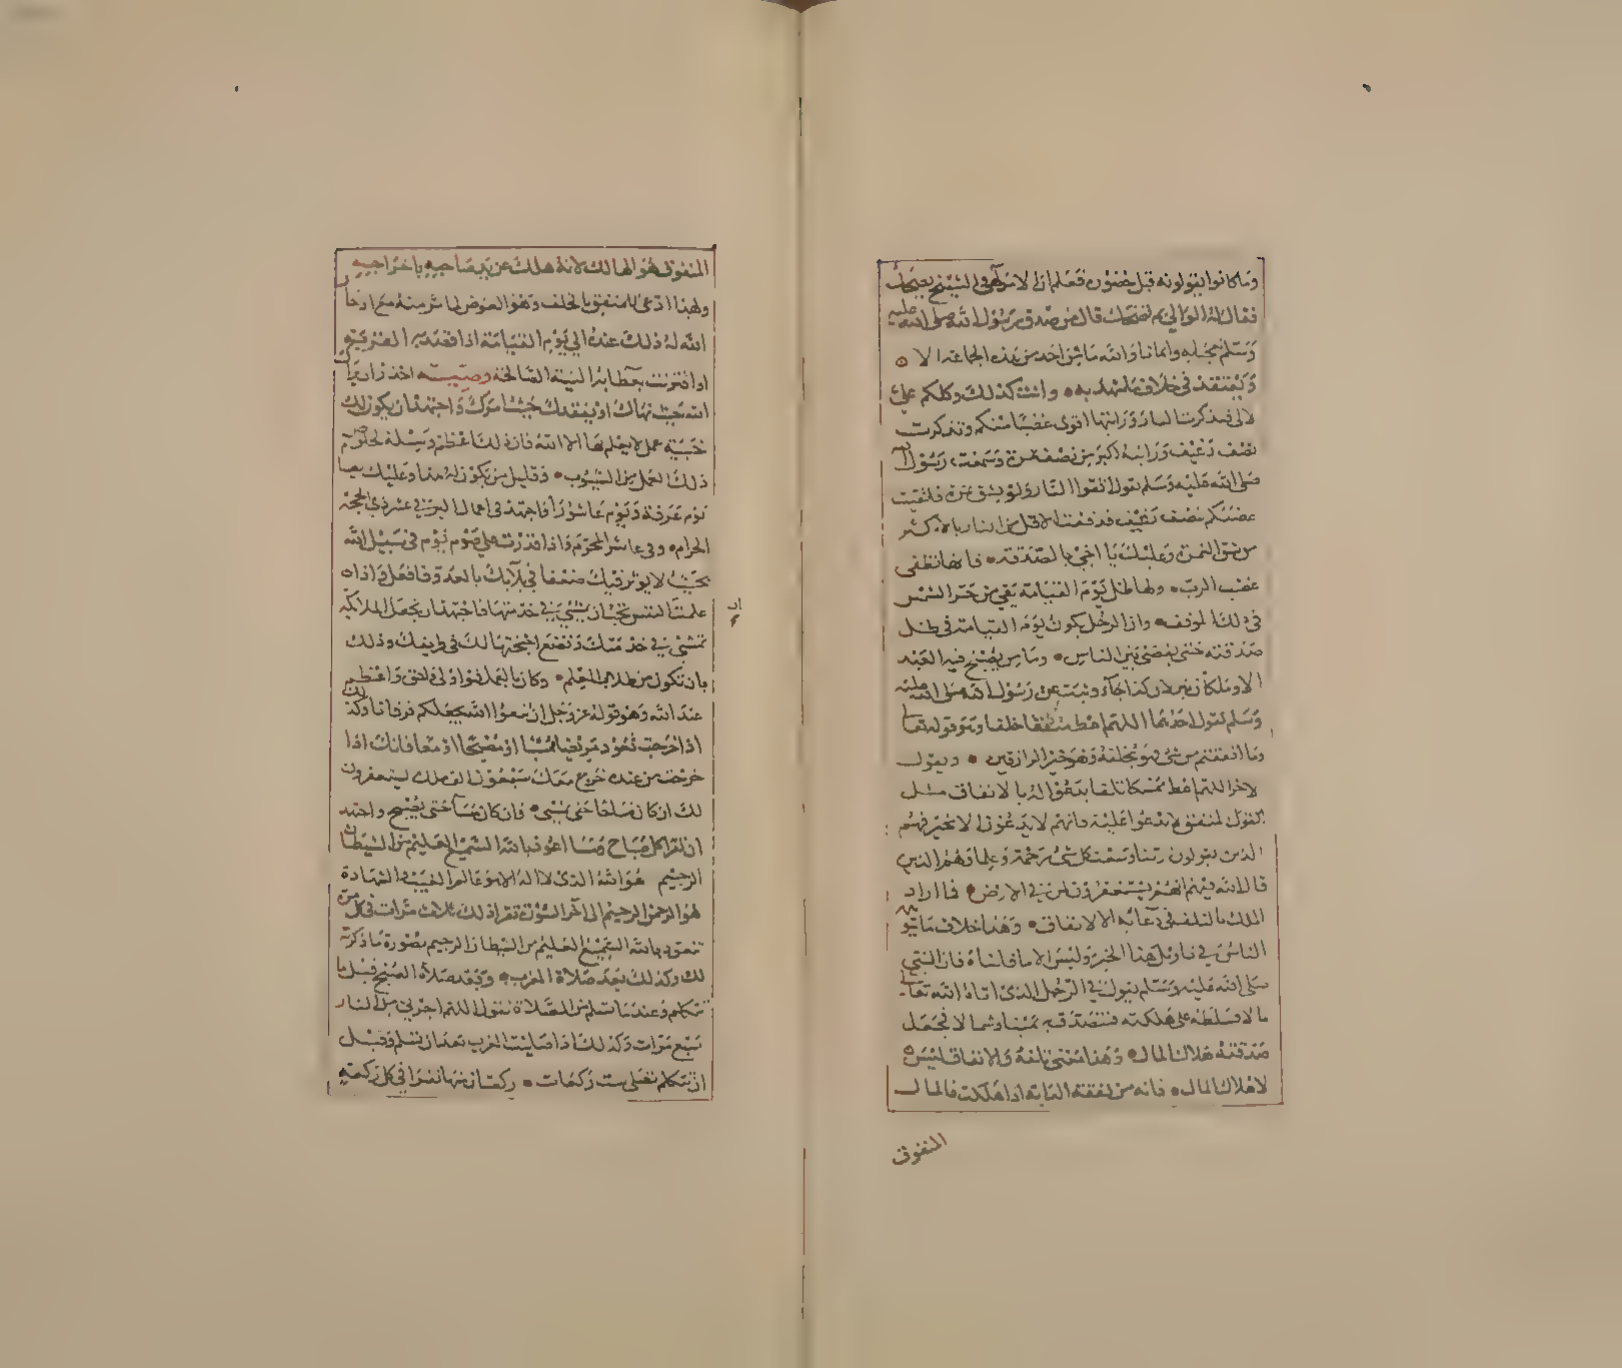 وما كانوا يقولونه قبل حضوره فعلم ان الامر الهي والشيخ يضحك
فقال له الوالي مم تضحك قال من صدق رسول الله صلى الله عليه
وسلم عجبا وايمانا والله ما من احد من هذه الجماعة الا
ويعتقد في خلاف ما شهد به وانت كذلك وكلكم علي
لا لي فتذكرت النار ورايتها اقوى غضبا منكم وتذكرت
نصف رغيف ورايته اكبر من نصف تمرة وسمعت رسول الله
صلى الله عليه وسلم يقول اتقوا النار ولو بشق تمرة فاتقيت
غضبكم بنصف رغيف فدفعت الاقل من النار بالاكثر
من شق التمرة وعليك يا اخي بالصدقة فانها تطفى
غضب الرب ولها ظل يوم القيامة يقي من حر الشمس
في ذلك الموقف وان الرجل يكون يوم القيامة في ظل
صدقته حتى يقضى بين الناس وما من يوم يصبح فيه العبد
الا وملكان ينزلان كذا جاء وثبت عن رسول الله صلى الله عليه
وسلم يقول احدهما اللهم اعط منفقا خلفا وهو قوله تعالى
وما انفقتم من شي فهو يخلفه وهو خير الرازقين ويقول
الاخر اللهم اعط ممسكا تلفا يدعوا له بالانفاق مثل
القول لمنفق لا يدعوا عليه فانهم لا يدعون الا بخير فهم
الذين يقولون ربنا وسعت كل شي رحمة وعلما وهم الذين
قال الله فيهم انهم يستغفرون لمن في الارض فما اراد
الملك بالتلف في دعائه الا الانفاق وهذا خلاف ما يتوهمه
الناس في تاويل هذا الخبر وليس الا ما قلناه فان النبي
صلى الله عليه وسلم يقول في الرجل الذي اتاه الله تعالى
مالا فسلطه على هلكته فتصدق به يمينا وشمالا فجعل
صدقته هلاك المال وهذا معنى تلفه والانفاق ليس
الا هلاك المال فانه من نفقت الدابة اذا هلكت فالمال
المنفوق
المنفوق هو الهالك لانه هلك عن يد صاحبه باخراجه
ولهذا ادعى للمنفق بالخلف وهو العوض لما مر منه مع ادخار
الله له ذلك عنده الى يوم القيامة اذا قصد به القربة
اذا اقترنت بعطائه النية الصالحة وصية احذر ان يراك
الله حيث نهاك او يفقدك حيث امرك واجتهد ان يكون لك
خبيئة عمل لا يعلم بها الا الله فان ذلك اعظم وسيلة لخلوص
ذلك العمل من الشوب وقليل من يكون له هذا وعليك بصيام
يوم عرفة ويوم عاشورا واجتهد في اعمال البر في عشر ذي الحجة
الحرام وفي عاشر المحرم واذا قدرت على صوم يوم في سبيل الله
بحيث لا يوثر فيك ضعفا في بلائك بالعدو فافعل واذا
علمت النفس تحب ان يمشي في خدمتها فاجتهد ان تجعل الملائكة
تمشي في خدمتك وتضع اجنحتها لك في طريقك وذلك
بان تكون من طلاب العلم وكان بالعمل فهو اولى واحق واعظم
عند الله وهو قوله عز وجل ان تتقوا الله يجعل لكم فرقانا وكذلك
اذا خرجت تعود مريضا ممسيا او مصبحا او معا فانك اذا
خرجت من عنده خرج معك سبعون الف ملك يستغفرون
لك ان كان صباحا حتى تمسي وان كان مساء حتى تصبح واجتهد
ان تقرا كل صباح ومسا اعوذ بالله السميع العليم من الشيطان
الرجيم هو الله الذي لا اله الا هو عالم الغيب والشهادة
هو الرحمن الرحيم الى اخر السورة تقرا ذلك ثلاث مرات في كل مرة
تتعوذ بالله السميع العليم من الشيطان الرجيم بصورة ما ذكرته
لك وكذلك بعد صلاة المغرب وبعد صلاة الصبح قبل ما
تتكلم وعندما تسلم من الصلاة تقول اللهم اجرني من النار
سبع مرات وكذلك اذا صليت المغرب بعد ان تسلم وقبل
ان تتكلم تصلي ست ركعات ركعتان منها تقرا في كل ركعة